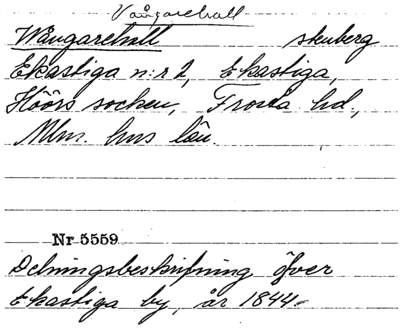 Vångarehall
Wångarehall stenberg
Ekastiga n:r 2, Ekastiga,
Höörs socken, Frosta hd.,
Mlm. hus län.
Nr 5559
Delningsbeskrifning öfver
Ekastiga by, år 1844.